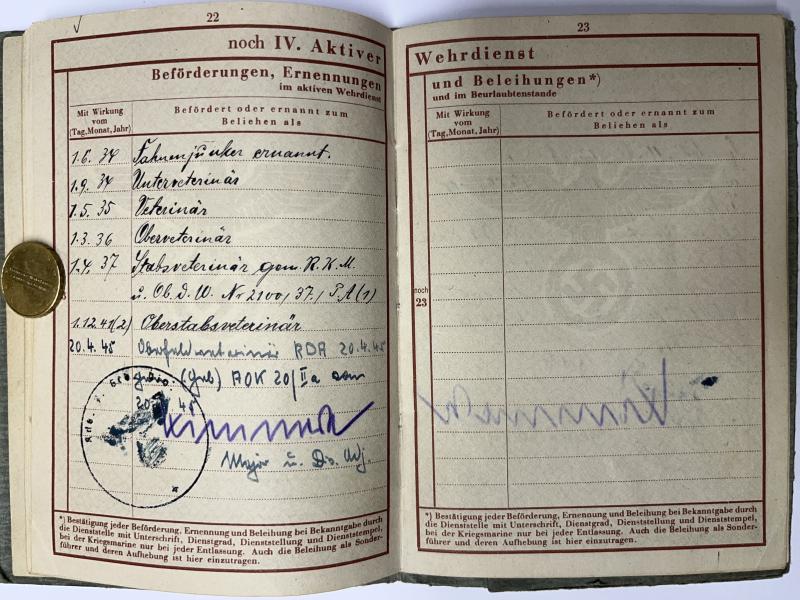 22
noch IV. Aktiver
Beförderungen, Ernennungen
im aktiven Wehrdienst
Mit Wirkung
vom
(Tag, Monat, Jahr)
Befördert oder ernannt zum
Beliehen als
1.6. 34 Fahnenjunker ernannt.
1.9. 34 Unterveterinär
1.5. 35 Veterinär
1.3. 36 Oberveterinär
1.4. 37 Stabsveterinär gem. R.K.M.
u. Ob. d. W. Nr 2100/37./P.A(1)
1.12.41(2) Oberstabsveterinär
20.4.45 Oberfeldveterinär RDA 20.4.45
(Geb) AOK 20/IIa vom
45
Major u. Div. Adj.
*) Bestätigung jeder Beförderung, Ernennung und Beleihung bei Bekanntgabe durch
die Dienststelle mit Unterschrift, Dienstgrad, Dienststellung und Dienststempel,
bei der Kriegsmarine nur bei jeder Entlassung. Auch die Beleihung als Sonder-
führer und deren Aufhebung ist hier einzutragen.
23
Wehrdienst
und Beleihungen*)
und im Beurlaubtenstande
Mit Wirkung
vom
(Tag, Monat, Jahr)
Befördert oder ernannt zum
Beliehen als
noch
23
*) Bestätigung jeder Beförderung, Ernennung und Beleihung bei Bekanntgabe durch
die Dienststelle mit Unterschrift, Dienstgrad, Dienststellung und Dienststempel,
bei der Kriegsmarine nur bei jeder Entlassung. Auch die Beleihung als Sonder-
führer und deren Aufhebung ist hier einzutragen.